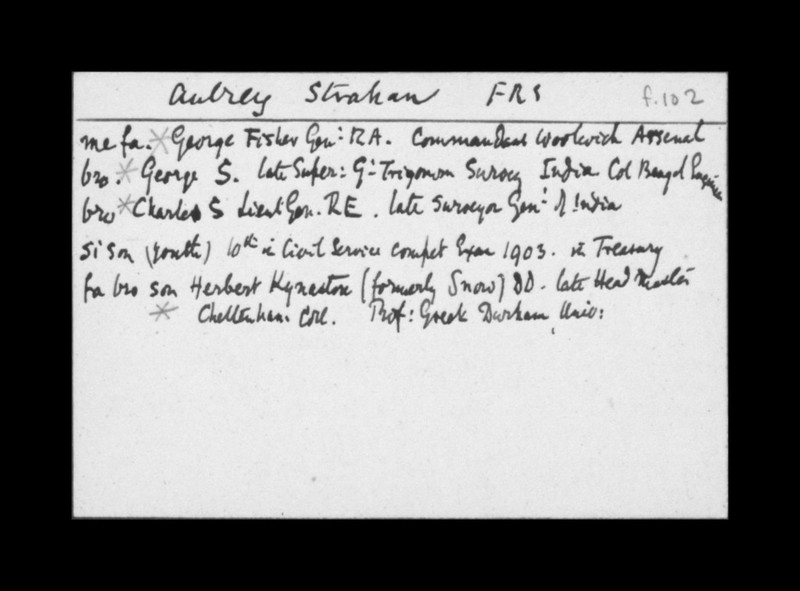 Aubrey Strahan FRS f.102
me fa. * George Fisher Genl: RA. Commandant Woolwich Arsenal
bro. * George S. late Super: Gt Trigonom Survey India. Col Bengal Engineers
bro * Charles S Lieut Gen. RE. late Surveyor Genl of India
si son (youth) 10th in Civil Service compet Exam 1903. in Treasury
fa bro son Herbert Kynaston (formerly Snow) DD. late Head Master
* Cheltenham Coll. Prof: Greek Durham Univ: